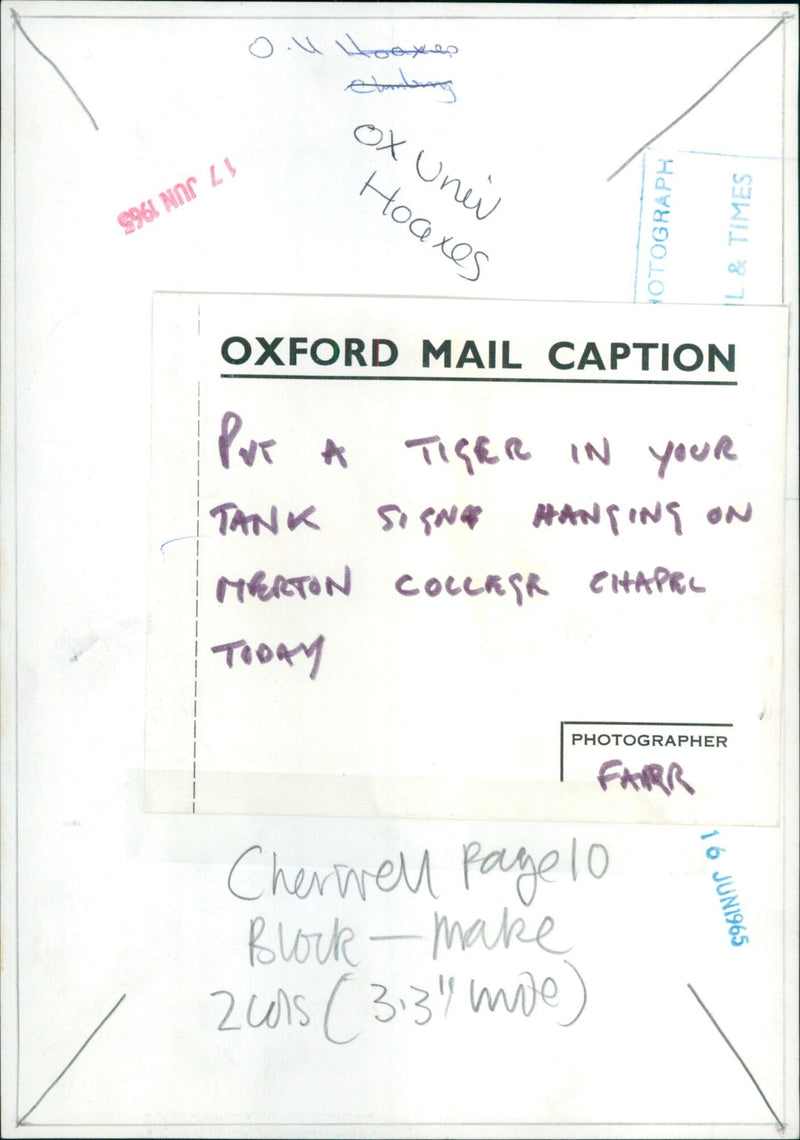 O.U Hoaxes
Climbing
Ox Univ
Hoaxes
17 JUN 1965
OTOGRAPH
L & TIMES
OXFORD MAIL CAPTION
PUT A TIGER IN YOUR
TANK SIGNS HANGING ON
MERTON COLLEGE CHAPEL
TODAY
PHOTOGRAPHER
FARR
16 JUN 1965
Cherwell Page 10
Block - Make
2 cols (3.3" wide)